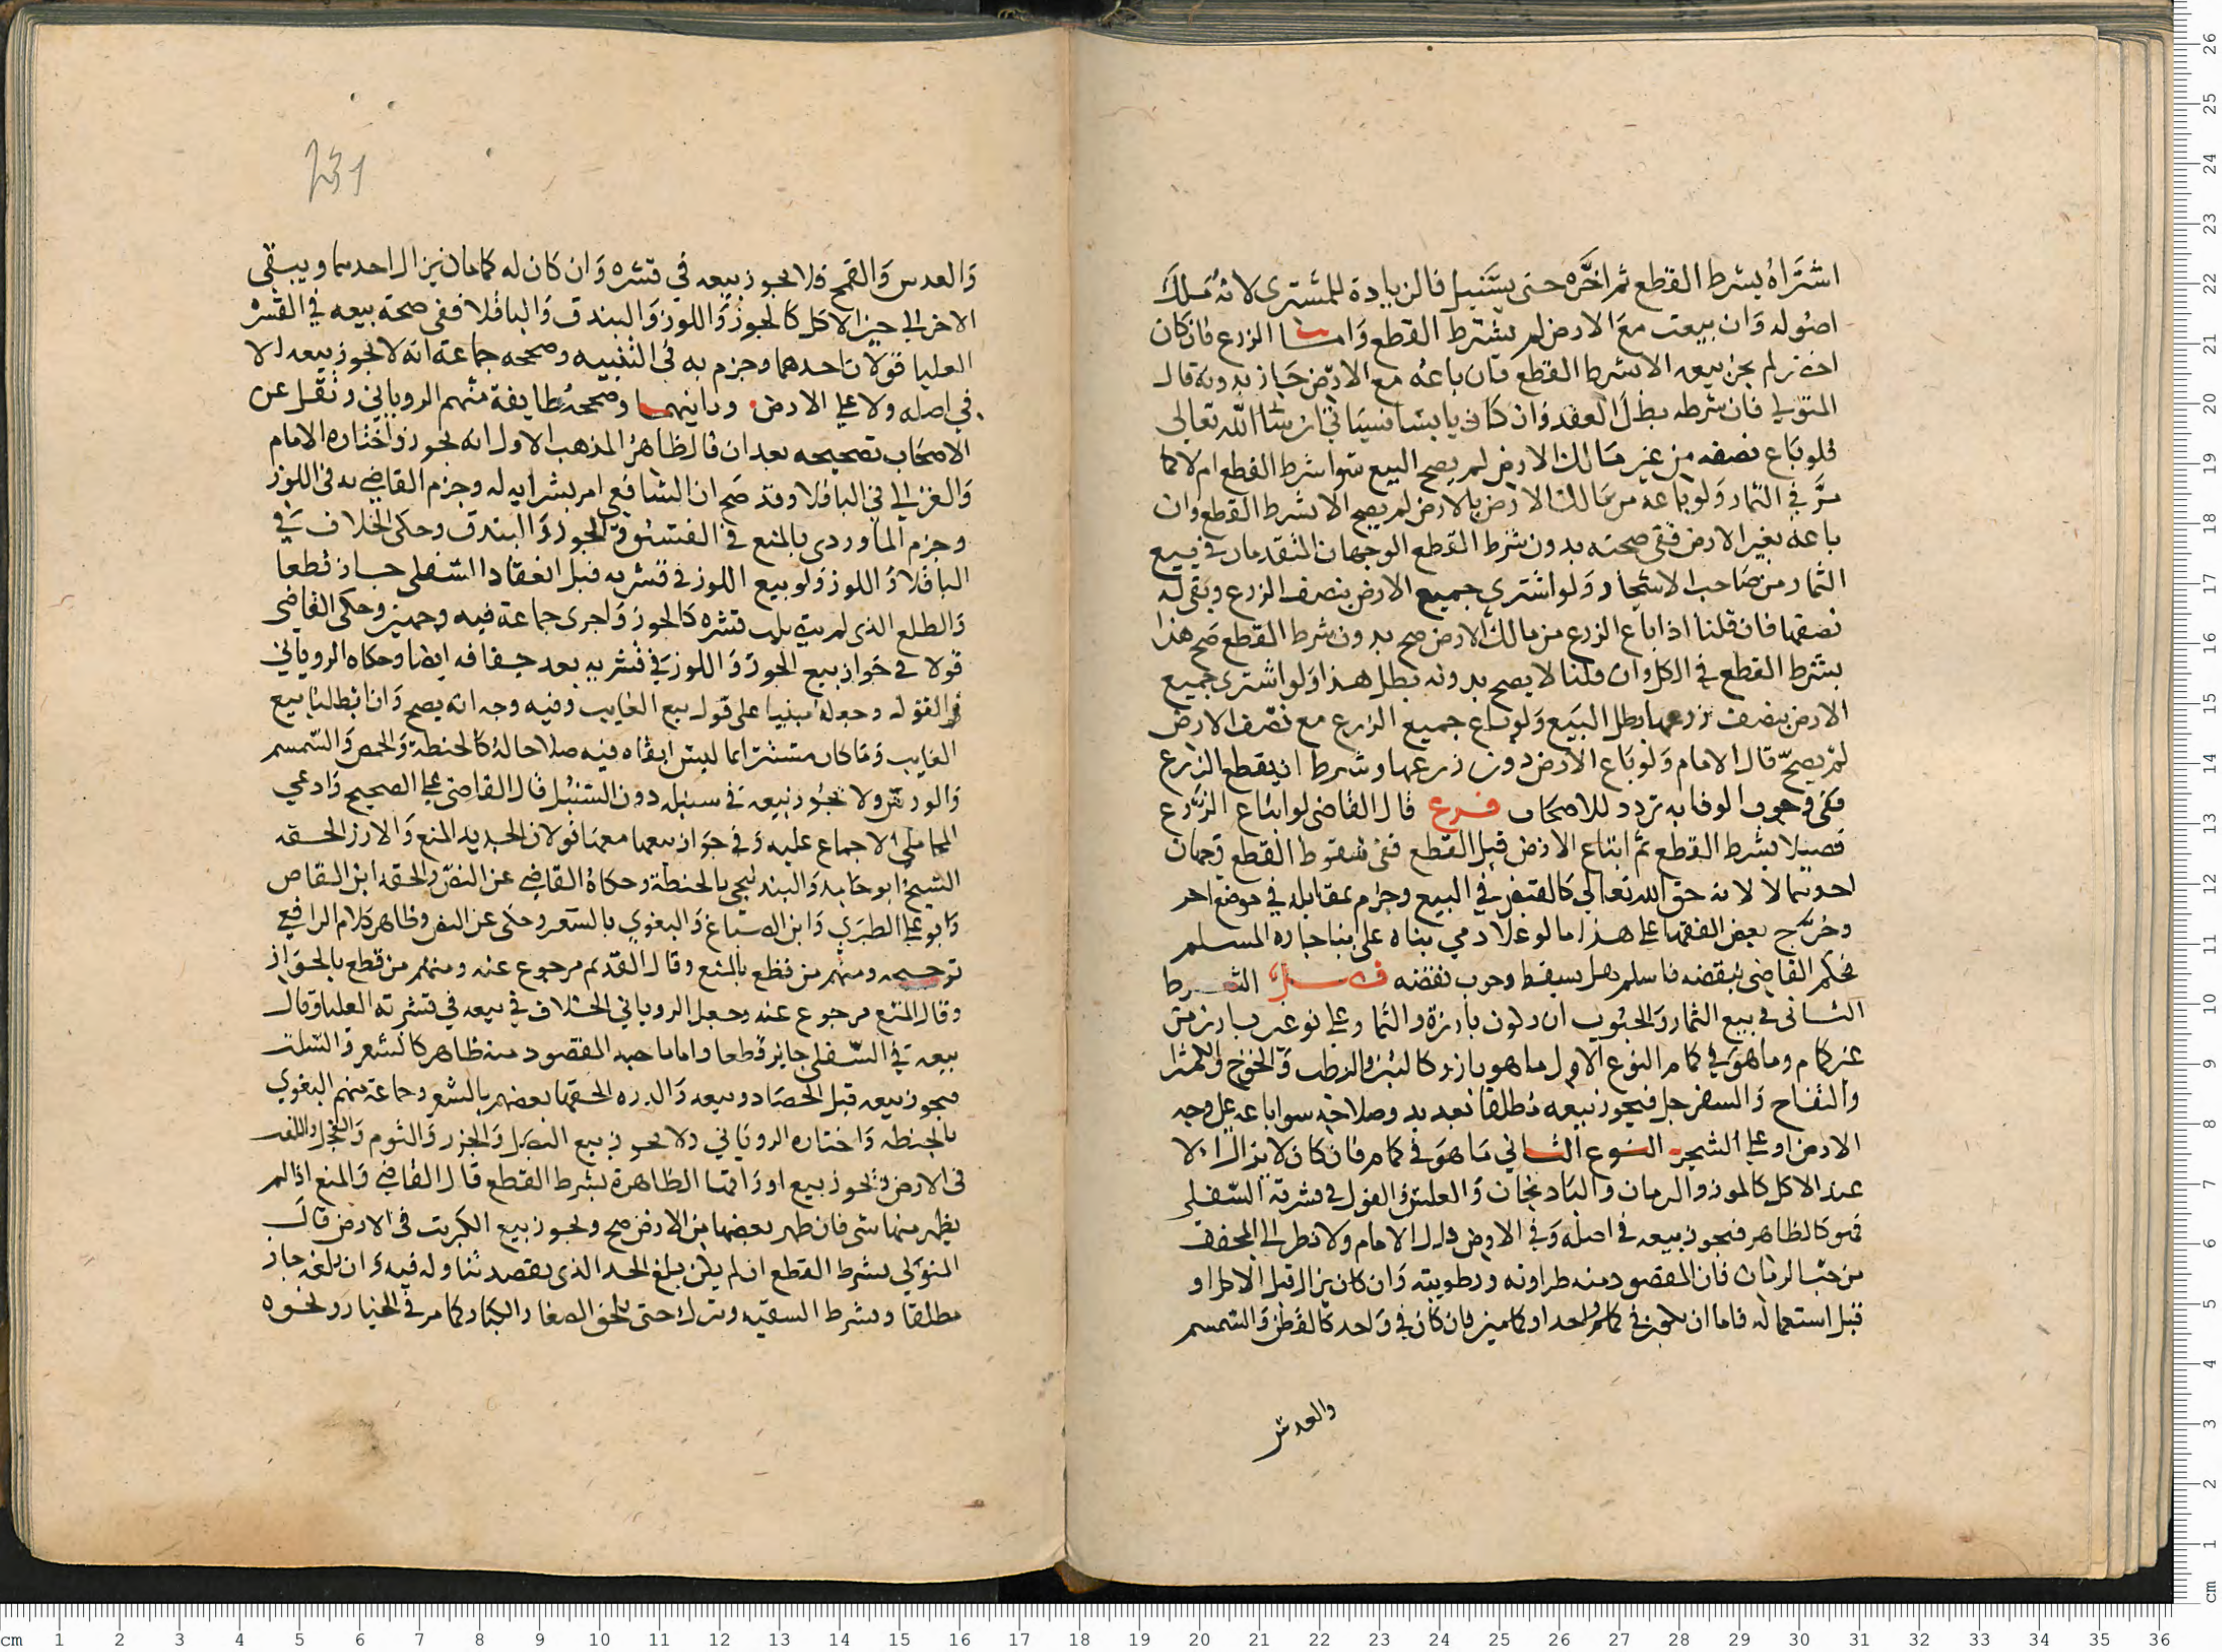 اشتراه بشرط القطع ثم اخره حتى يسنبل فالزيادة للمشترى لانه ملك
اصوله وان بيعت مع الارض لم يشترط القطع واما الزرع فان كان
اخضر لم يجز بيعه الا بشرط القطع فان باعه مع الارض جاز بدونه قال
المتولي فان شرطه بطل العقد وان كان يابسا فسياتي ان شا الله تعالى
فلو باع نصفه من غير مالك الارض لم يصح البيع سوا شرط القطع ام لا كما
مر في الثمار ولو باعه من مالك الارض بالارض لم يصح الا بشرط القطع وان
باعه بغير الارض ففى صحته بدون شرط القطع الوجهان المتقدمان في بيع
الثمار من صاحب الاشجار ولو اشترى جميع الارض بنصف الزرع وبقى له
نصفها فان قلنا اذا باع الزرع من مالك الارض صح بدون شرط القطع صح هذا
بشرط القطع في الكل وان قلنا لا يصح بدونه بطل هذا ولو اشترى جميع
الارض بنصف زرعها بطل البيع ولو باع جميع الزرع مع نصف الارض
لم يصح قال الامام ولو باع الارض دون زرعها وشرط ان يقطع الزرع
ففى وجوب الوفا به تردد للاصحاب فرع قال القاضى لو ابتاع الزرع
قصيلا بشرط القطع ثم ابتاع الارض قبل القطع ففى سقوط القطع وجهان
احدهما لا لانه حق الله تعالى كالقبض في البيع وجزم بمقابله في موضع اخر
وخرج بعض الفقها على هذا ما لو علا ذمي بناه على بنا جاره المسلم
فحكم القاضى بنقضه فاسلم هل يسقط وجوب نقضه فصل الشرط
الثانى في بيع الثمار والحبوب ان يكون بارزة والثمار على نوعين بارز من
غير كمام وما هو في كمام النوع الاول ما هو بارز كالتين والرطب والخوخ والكمثرا
والتفاح والسفرجل فيجوز بيعه مطلقا بعد بدو صلاحه سوا باعه على وجه
الارض او على الشجر النوع الثاني ما هو في كمام فان كان لا يزال الا
عند الاكل كالموز والرمان والبادنجان والعلس والفول في قشرته السفلى
فهو كالظاهر فيجوز بيعه في اصله وفي الارض قال الامام ولا نظر الى المجفف
من حب الرمان فان المقصود منه طراوته ورطوبته وان كان يزال قبل الاكل او
قبل استعماله فاما ان يكون في كمام واحد او كمامين فان كان في واحد كالقطن والسمسم
والعدس
والعدس والقمح فلا يجوز بيعه في قشره وان كان له كمامان يزال احدهما ويبقى
الاخر الى حين الاكل كالجوز واللوز والبندق والباقلا ففى صحة بيعه في القشره
العليا قولان احدهما وجزم به في التنبيه وصححه جماعة انه لا يجوز بيعه لا
في اصله ولا على الارض وثانيهما وصححه طايفة منهم الروياني ونقل عن
الاصحاب تصحيحه بعد ان قال ظاهر المذهب الاول انه يجوز واختاره الامام
والغزالي في الباقلا وقد صح ان الشافعي امر بشرايه له وجزم القاضي به في اللوز
وجزم الماوردى بالمنع في الفستق والجوز والبندق وحكى الخلاف في
الباقلا واللوز ولو بيع اللوز في قشريه قبل انعقاد السفلى جاز قطعا
والطلع الذى لم يتصلب قشره كالجوز واجرى جماعة فيه وجهين وحكى القاضى
قولا في جواز بيع الجوز واللوز في قشريه بعد جفافه ايضا وحكاه الروياني
في الفوله وجعله مبنيا على قول بيع الغايب وفيه وجه انه يصح وان ابطلنا بيع
الغايب وما كان مستترا بما ليس ابقاه فيه صلاحا له كالحنطة والحمص والسمسم
والورس ولا يجوز بيعه في سنبله دون السنبل قال القاضى على الصحيح وادعي
المحاملي الاجماع عليه وفي جواز بيعها معها قولان الجديد المنع والارز الحقه
الشيخ ابو حامد والبندنيجي بالحنطة وحكاه القاضي عن النص والحقه ابن القاص
وابو علي الطبري وابن الصباغ والبغوي بالشعير وحكى عن النص وظاهر كلام الرافعي
ترجيحه ومنهم من قطع بالمنع وقال القديم مرجوع عنه ومنهم من قطع بالجواز
وقال المنع مرجوع عنه وجعل الروياني الخلاف في بيعه في قشرته العليا وقال
بيعه في السفلى جايز قطعا واما ما حبه المقصود منه ظاهر كالشعير والسلت
فيجوز بيعه قبل الحصاد وبعده والذره الحقها بعضهم بالشعير وجماعة منهم البغوي
بالحنطه واختاره الروياني ولا يجوز بيع البصل والجزر والثوم والفجل واللفت
في الارض ويجوز بيع اوراقها الظاهرة بشرط القطع قال القاضي والمنع اذا لم
يظهر منها شى فان ظهر بعضها من الارض صح ويجوز بيع الكبريت في الارض قال
المتولي بشرط القطع ان لم يكن بلغ الحد الذى يقصد تناوله فيه وان بلغه جاز
مطلقا وبشرط السقيه ويترك حتى يلحق الصغار بالكبار كما مر في الخيار ونحوه